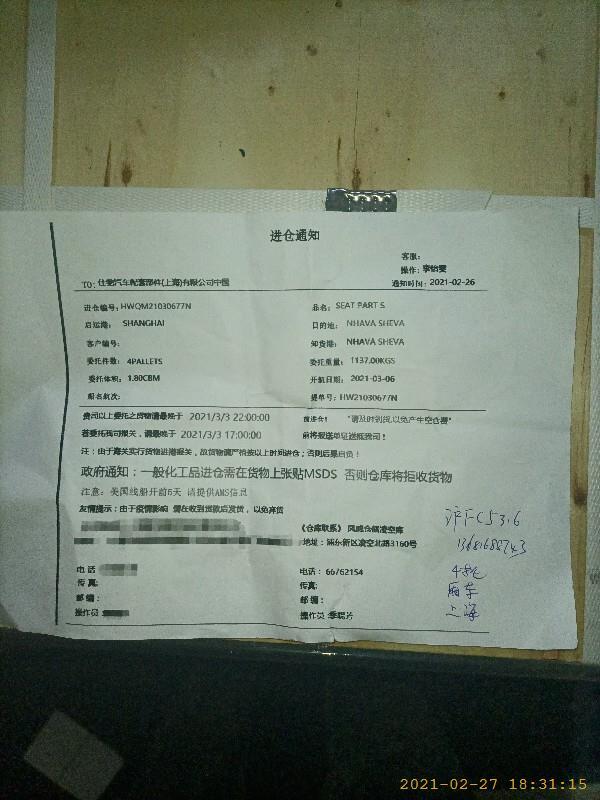 进仓通知
客服：
操作：李怡雯
TO: 住曼汽车配套部件(上海)有限公司中国 通知时间：2021-02-26
进仓编号：HWQM21030677N 品名：SEAT PARTS
启运港： SHANGHAI 目的地： NHAVA SHEVA
客户编号： 卸货港： NHAVA SHEVA
委托件数： 4PALLETS 委托重量： 1137.00KGS
委托体积： 1.80CBM 开航日期： 2021-03-06
船名航次： 提单号：HW21030677N
贵司以上委托之货物请最晚于 2021/3/3 22:00:00 前进仓！ "请及时到货,以免产生空舱费"
若委托我司报关，请最晚于 2021/3/3 17:00:00 前将报送单证送抵我司！
注：由于海关实行货物进港报关，故货物请严格按以上时间进仓；否则后果自负！
政府通知：一般化工品进仓需在货物上张贴MSDS 否则仓库将拒收货物
注意：美国线船开前5天 请提供AMS信息
友情提示：由于疫情影响 需在收到货款后发货，以免弃货
《仓库联系》 风威仓储凌空库
地址：浦东新区凌空北路3160号
电话 电话：66762154
传真： 传真:
邮编： 邮编：
操作员 操作员 季晓片
4托
厢车
上海
2021-02-27 18:31:15